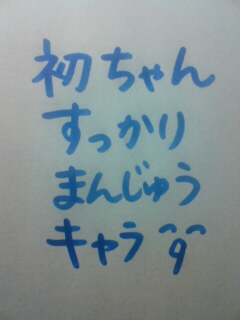 初ちゃん
すっかり
まんじゅう
キャラ^9^